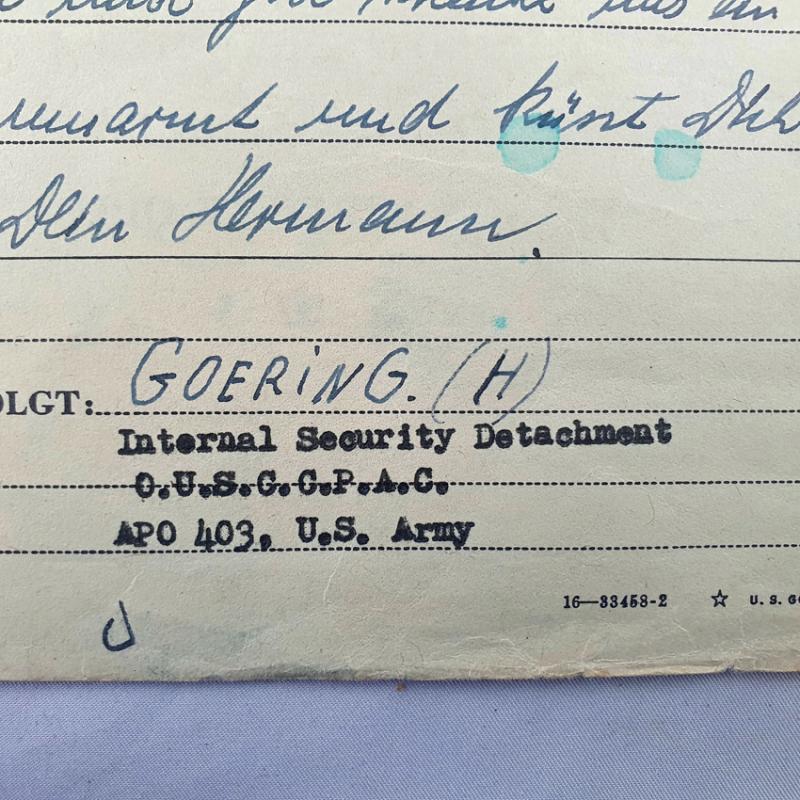 und
umarmt und küsst Dich
Dein Hermann.
OLGT: GOERING. (H)
Internal Security Detachment
O.U.S.C.C.P.A.C.
APO 403, U.S. Army
16—33458-2 ☆ U. S. GO